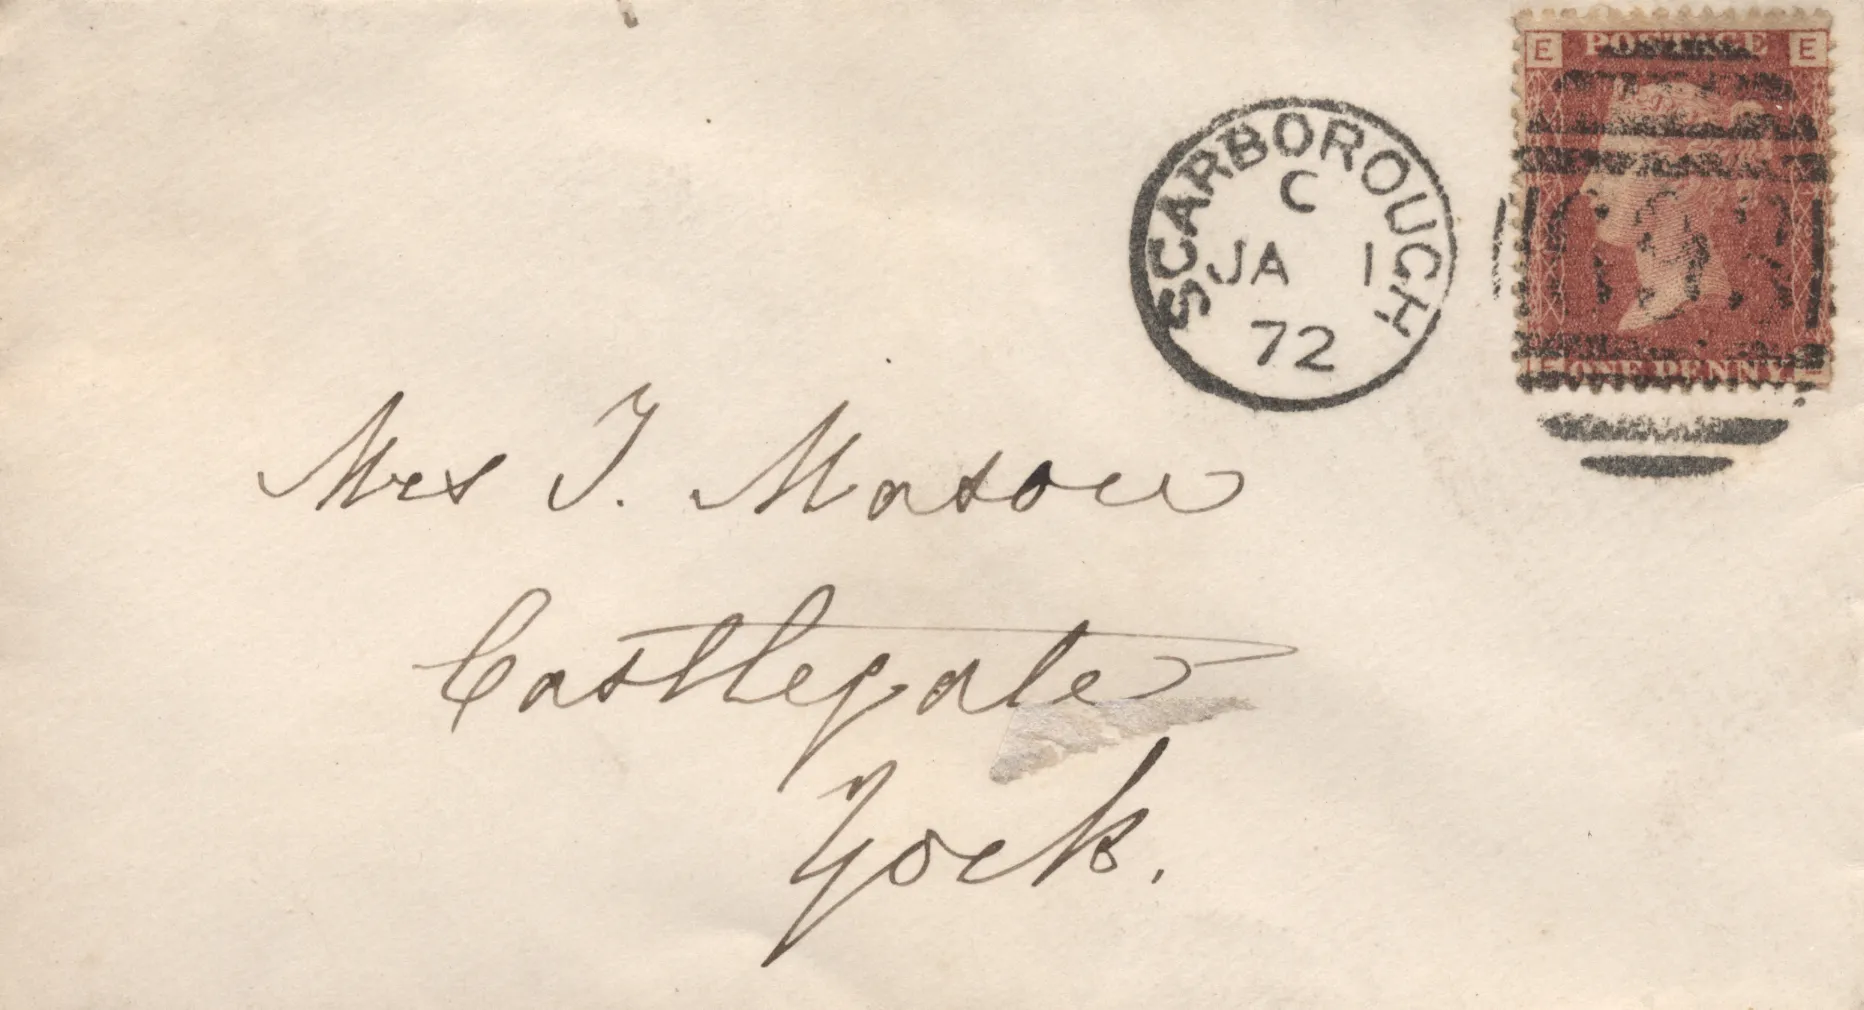 E POSTAGE E
SCARBOROUGH
C
JA 1
72
ONE PENNY
Mrs T. Mason
Castlegate
York.